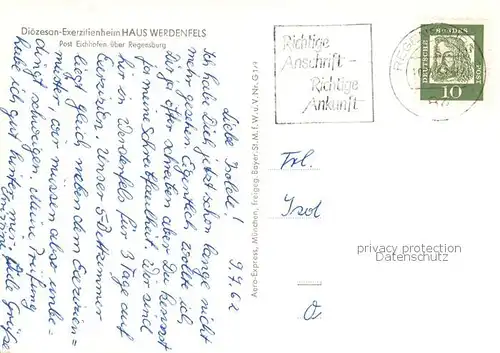 Diözesan-Exerzitienheim HAUS WERDENFELS
Post Eichhofen über Regensburg
9.4.62
Liebe Isolde!
Ich habe Dich jetzt schon lange nicht
mehr gesehen. Eigentlich wollte ich
Dir ja öfter schreiben aber Du kennst
ja meine Schreibfaulheit. Wir sind
hier in Werdenfels für 3 Tage auf
Exerzitien. Unser 5-Bettzimmer
liegt gleich neben dem Exerzitien=
meister, wir müssen also unbe-
dingt schweigen. Meine Prüfung
habe ich gut hinter mir. Viele Grüße
Aero-Express, München, Freigeg. Bayer. St. M. f. W. u. V. Nr. G
Richtige
Anschrift -
Richtige
Ankunft
DEUTSCHE BUNDESPOST
10
Frl.
Isol
privacy protection
Datenschutz